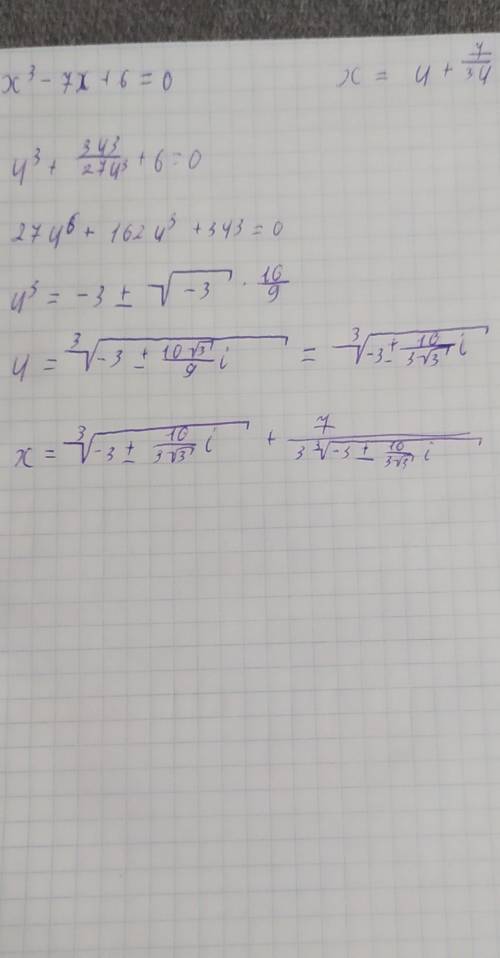 x³ - 7x + 6 = 0
x = y + 7/(3y)
y³ + 343/(27y³) + 6 = 0
27y⁶ + 162y³ + 343 = 0
y³ = -3 ± √(-3) · 10/9
y = ∛(-3 ± (10√3)/9 i) = ∛(-3 ± 10/(3√3) i)
x = ∛(-3 ± 10/(3√3) i) + 7/(3∛(-3 ± 10/(3√3) i))